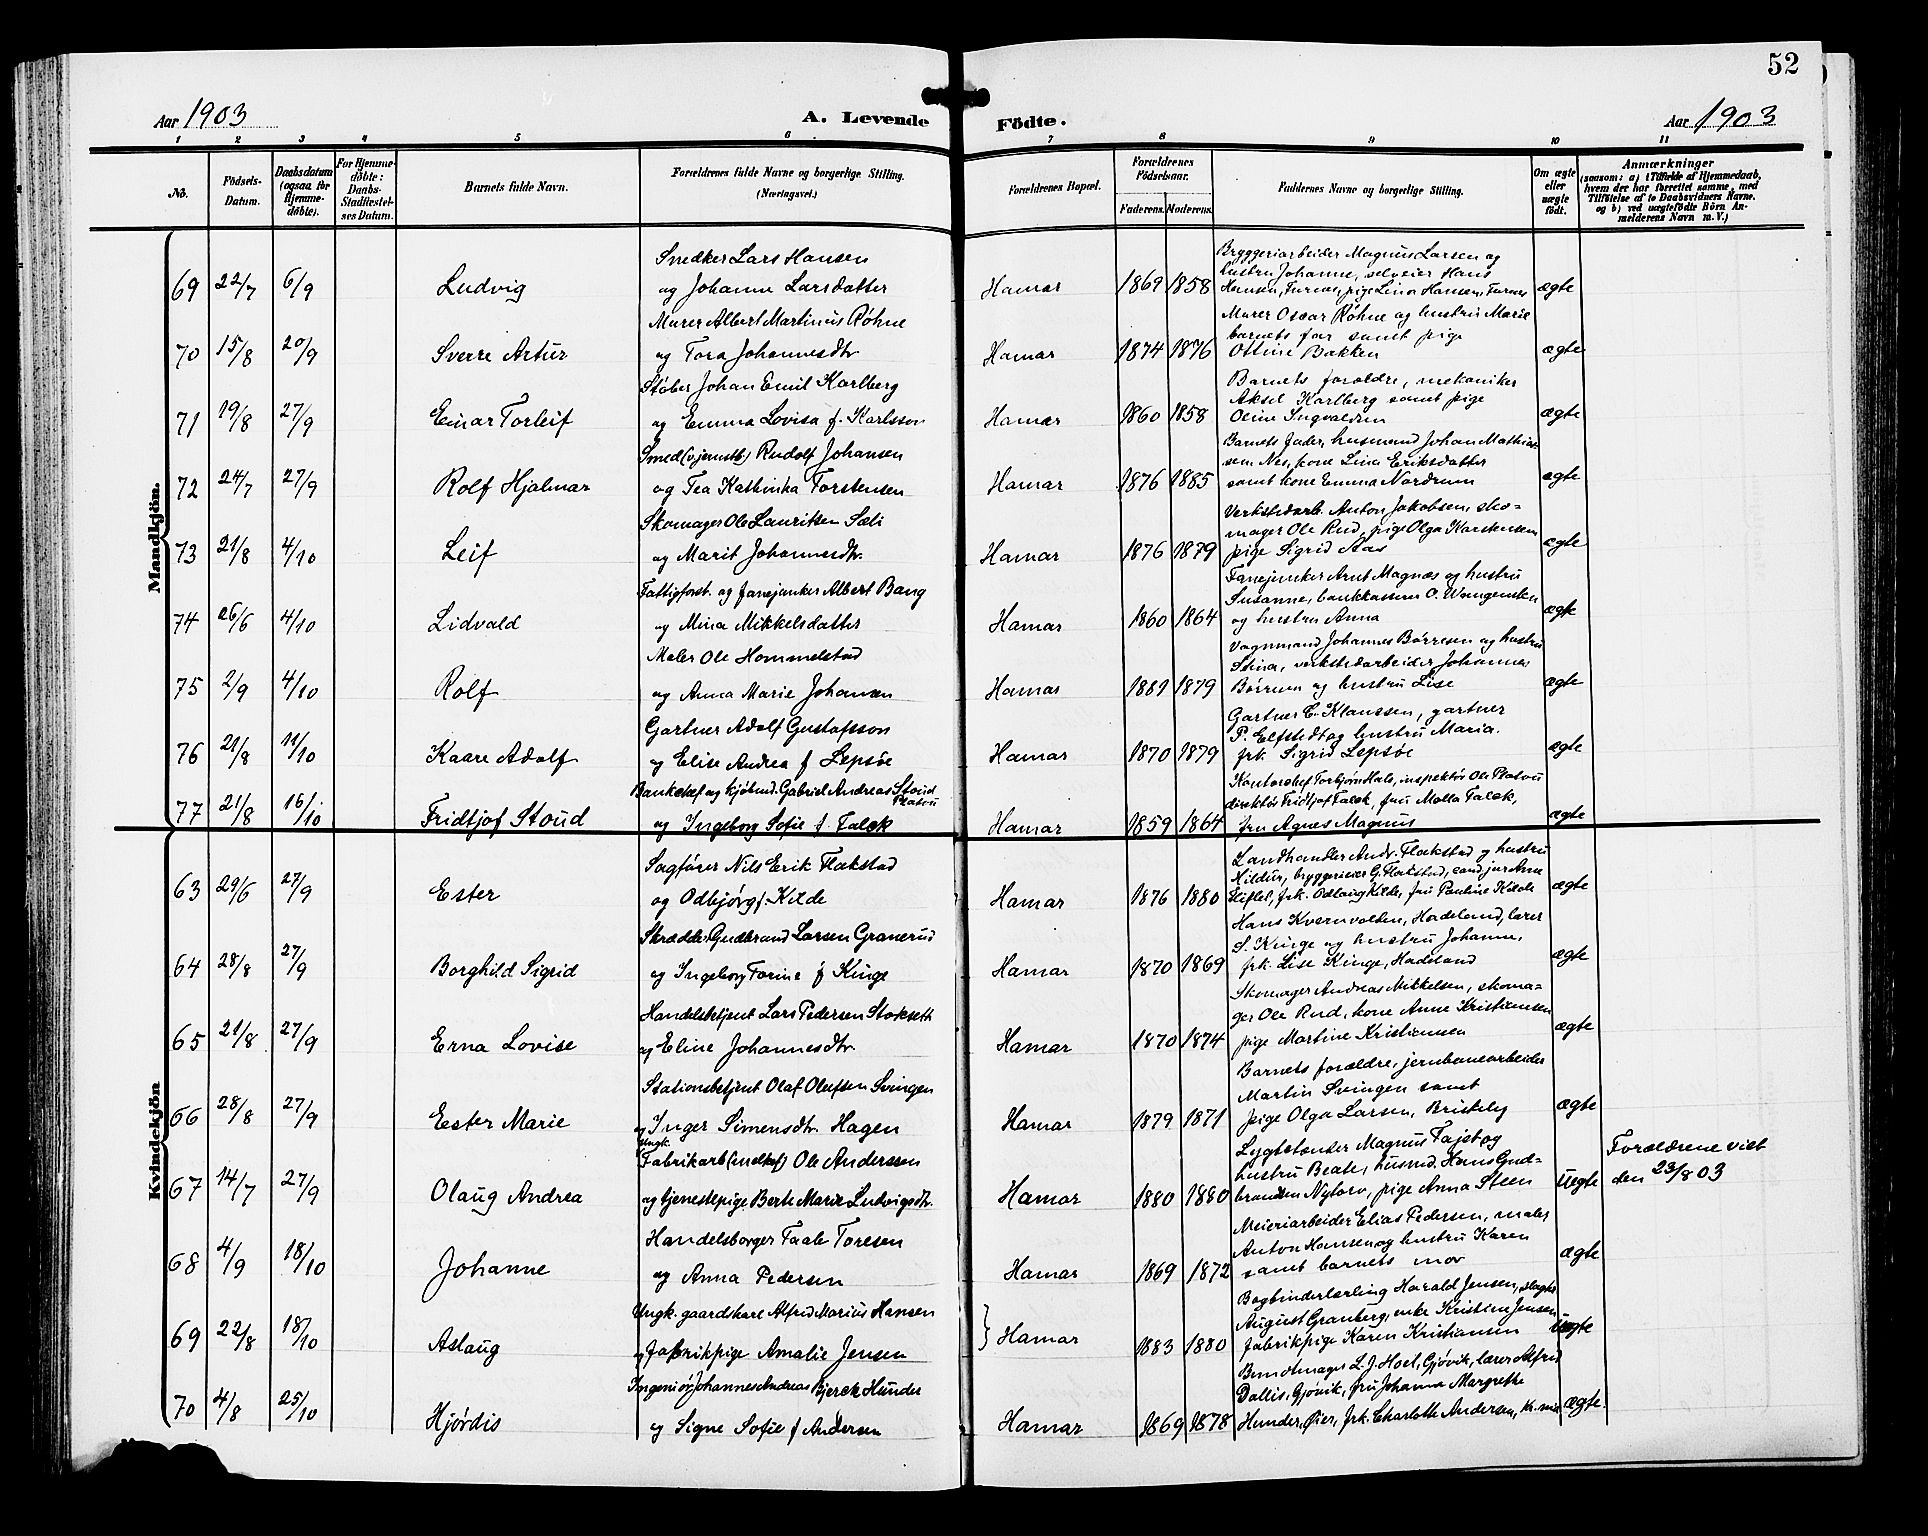 52
Aar 1903
A. Levende
Födte.
Aar 1903
1 2 3 4 5 6 7 8 9 10 11
No.
Födsels-
Datum.
Daabsdatum
(ogsaa for
Hjemme-
döbte).
For Hjemme-
döbte:
Daabs-
Stadfæstel-
ses Datum.
Barnets fulde Navn.
Forældrenes fulde Navne og borgerlige Stilling.
(Næringsvei.)
Forældrenes Bopæl.
Forældrenes
Födselsaar.
Faderens. Moderens.
Faddernes Navne og borgerlige Stilling.
Om ægte
eller
uægte
født.
Anmærkninger
(saasom: a) i Tilfælde af Hjemmedaab,
hvem der har forrettet samme, med
Tilföielse af to Daabsvidners Navne.
og b) ved uægtefödte Börn An-
melderens Navn m. V.)
Mandkjön.
Snedker Lars Hansen
69 22/7 6/9 Ludvig og Johanne Larsdatter Hamar 1869 1858
Bryggeriarbeider Magnus Larsen og
hustru Johanne, selveier Hans
Hansen, Furnes, pige Lina Hansen, Furnes ægte
Murer Albert Martinus Røhne
70 15/8 20/9 Sverre Artur og Tora Johannesdtr. Hamar 1874 1876
Murer Oscar Røhne og hustru Marie
barnets far samt pige
Ottine Bakken ægte
Støber Johan Emil Karlberg
71 19/8 27/9 Einar Torleif og Emma Lovisa f. Karlsson Hamar 1860 1858
Barnets forældre, mekaniker
Aksel Karlberg samt pige
Oline Ingvaldsen ægte
Smed (v. jernstb.) Rudolf Johansen
72 24/7 27/9 Rolf Hjalmar og Tea Kathinka Torstensen Hamar 1876 1885
Barnets fader, husmand Johan Mathias
sen Nes, kone Lina Eriksdatter
samt kone Emma Nordrum ægte
Skomager Ole Lauritsen Sæli
73 21/8 4/10 Leif og Marit Johannesdtr. Hamar 1876 1879
Verkstedarb. Anton Jakobsen, sko-
mager Ole Rud, pige Olga Karstensen
pige Sigrid Aas ægte
Fattigforst. og fanejunker Albert Bang
74 26/6 4/10 Lidvald og Mina Mikkelsdatter Hamar 1860 1864
Fanejunker Arnt Magnæs og hustru
Susanne, bankkasserer O. Wangensten
og hustru Anna ægte
Maler Ole Hommelstad
75 2/9 4/10 Rolf og Anna Marie Johansen Hamar 1889 1879
Vognmand Johannes Børresen og hustru
Stina, verkstedarbeider Johannes
Børresen og hustru Lise ægte
Gartner Adolf Gustafsson
76 21/8 11/10 Kaare Adolf og Elise Andrea f. Lepsøe Hamar 1870 1879
Gartner C. Klaussen, gartner
P. Elfstedt og hustru Maria.
frk. Sigrid Lepsøe ægte
Bankchef og kjøbmd. Gabriel Andreas Stoud
Platou
77 21/8 16/10 Fridtjof Stoud og Ingeborg Sofie f. Falck Hamar 1859 1864
Kontorchef Torbjørn Hals, inspektør Ole Platou
direktør Fridtjof Falck, fru Molla Falck,
fru Agnes Magnus ægte
Kvindekjön
Sagfører Nils Erik Flakstad
63 29/6 27/9 Ester og Odbjørg f. Kilde Hamar 1876 1880
Landhandler Andr. Flakstad og hustru
Hildur, bryggerieier G. Flakstad, cand jur Arne
frk. Odlaug Kilde, fru Pauline Kilde ægte
Skrædder Gudbrand Larsen Granerud
64 28/8 27/9 Borghild Sigrid og Ingeborg Torine f. Kinge Hamar 1870 1869
Hans Kvernvolden, Hadeland, lærer
S. Kinge og hustru Johanne,
frk. Lise Kinge, Hadeland ægte
Handelsbetjent Lars Pedersen Stokseth
65 21/8 27/9 Erna Lovise og Eline Johannesdtr. Hamar 1870 1874
Skomager Andreas Mikkelsen, skoma-
ger Ole Rud, kone Anne Kristiansen
pige Martine Kristiansen ægte
Stationsbetjent Olaf Olufsen Svingen
66 28/8 27/9 Ester Marie og Inger Simensdtr. Hagen Hamar 1879 1871
Barnets forældre, jernbanearbeider
Martin Svingen samt
pige Olga Larsen, Briskeby ægte
Ungk.
Fabrikarb. Ole Anderssen
67 14/7 27/9 Olaug Andrea og tjenestepige Berte Marie Ludvigsdtr. Hamar 1880 1880
Lygtetænder Magnus Tajet og
hustru Beate, husmd. Hans Gud-
brandsen Nytorv, pige Anna Steen Uegte
Forældrene viet
den 23/8 03
Handelsborger Taale Toresen
68 4/9 18/10 Johanne og Anna Pedersen Hamar 1869 1872
Meieriarbeider Elias Pedersen, maler
Anton Hansen og hustru Karen
samt barnets mor ægte
Ungk. gaardskarl Alfred Marius Hansen
69 22/8 18/10 Aslaug og fabrikpige Amalie Jensen } Hamar 1883 1880
Bogbinderlærling Harald Jensen, slagter
August Granberg, enke Kristine Jensen
fabrikpige Karen Kristiansen Uegte
Ingeniør Johannes Andreas Bjerck Hunder
70 4/8 25/10 Hjørdis og Signe Sofie f. Andersen Hamar 1869 1878
Bundtmager L. J. Hoel, Gjøvik, lærer Alfred
Dallis, Gjøvik, fru Johanna Margrethe
Hunder, Øier, frk. Charlotte Andersen, Kr.nia ægte.